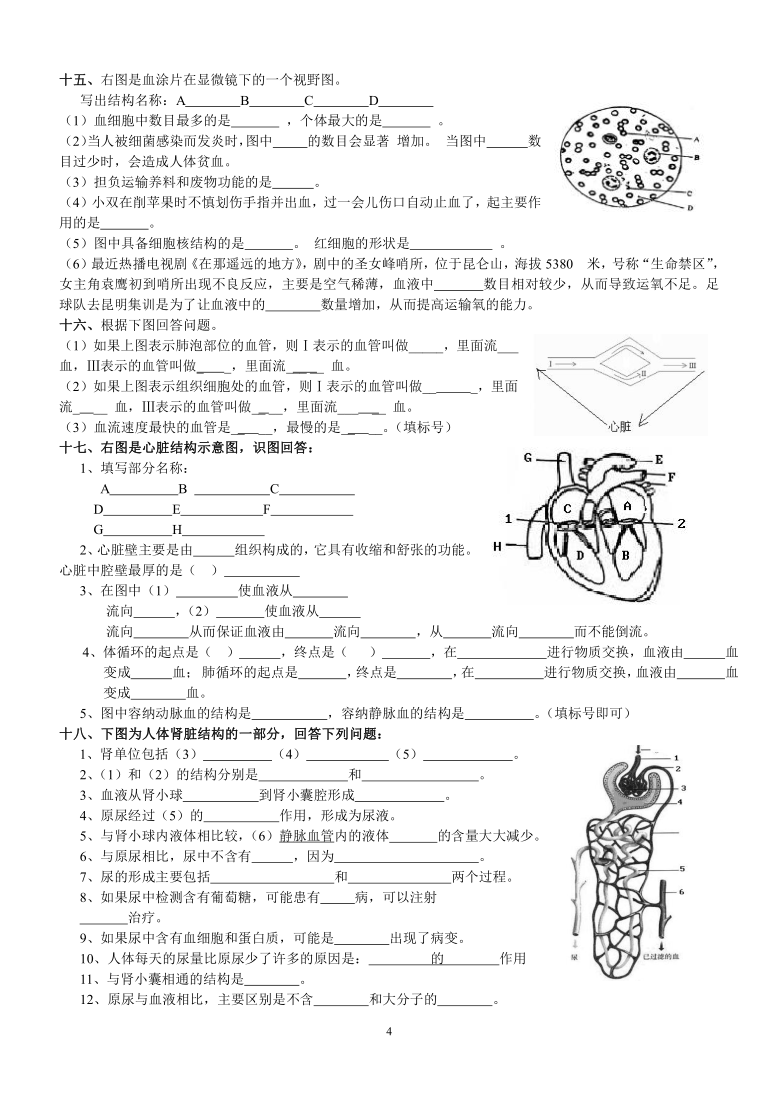 十五、右图是血涂片在显微镜下的一个视野图。
写出结构名称：A________B________C________D________
（1）血细胞中数目最多的是_______ ，个体最大的是_______ 。
（2）当人被细菌感染而发炎时，图中_____的数目会显著 增加。 当图中______数
目过少时，会造成人体贫血。
（3）担负运输养料和废物功能的是______。
（4）小双在削苹果时不慎划伤手指并出血，过一会儿伤口自动止血了，起主要作
用的是_______。
（5）图中具备细胞核结构的是_______。 红细胞的形状是____________ 。
A
B
C
D
（6）最近热播电视剧《在那遥远的地方》，剧中的圣女峰哨所，位于昆仑山，海拔 5380 米，号称“生命禁区”，
女主角袁鹰初到哨所出现不良反应，主要是空气稀薄，血液中_______数目相对较少，从而导致运氧不足。足
球队去昆明集训是为了让血液中的________数量增加，从而提高运输氧的能力。
十六、根据下图回答问题。
（1）如果上图表示肺泡部位的血管，则Ⅰ表示的血管叫做_____，里面流___
血，Ⅲ表示的血管叫做_____，里面流_____ 血。
（2）如果上图表示组织细胞处的血管，则Ⅰ表示的血管叫做________，里面
流_____ 血，Ⅲ表示的血管叫做_____，里面流_______ 血。
（3）血流速度最快的血管是______，最慢的是______。（填标号）
Ⅰ
Ⅱ
Ⅲ
心脏
十七、右图是心脏结构示意图，识图回答：
1、填写部分名称：
A__________B ___________C___________
D__________E____________F____________
G__________H____________
2、心脏壁主要是由______组织构成的，它具有收缩和舒张的功能。
心脏中腔壁最厚的是（ ）___________
3、在图中（1）_________使血液从________
流向______，（2）_______使血液从______
流向________从而保证血液由_______流向________，从_______流向________而不能倒流。
G
E
F
C
A
1
2
H
D
B
4、体循环的起点是（ ）______，终点是（ ）_______，在_____________进行物质交换，血液由______血
变成______血； 肺循环的起点是_______，终点是________，在__________进行物质交换，血液由_______血
变成________血。
5、图中容纳动脉血的结构是___________，容纳静脉血的结构是__________。（填标号即可）
十八、下图为人体肾脏结构的一部分，回答下列问题：
1、肾单位包括（3）__________（4）____________（5）_____________。
2、（1）和（2）的结构分别是_____________和_________________。
3、血液从肾小球___________到肾小囊腔形成_____________。
4、原尿经过（5）的___________作用，形成为尿液。
5、与肾小球内液体相比较，（6）静脉血管内的液体_______的含量大大减少。
6、与原尿相比，尿中不含有______，因为_____________________。
7、尿的形成主要包括__________________和_______________两个过程。
8、如果尿中检测含有葡萄糖，可能患有_____病，可以注射
_______治疗。
9、如果尿中含有血细胞和蛋白质，可能是________出现了病变。
10、人体每天的尿量比原尿少了许多的原因是：_________的________作用
11、与肾小囊相通的结构是________。
12、原尿与血液相比，主要区别是不含________和大分子的________。
1
2
3
4
5
6
尿
已过滤的血
4